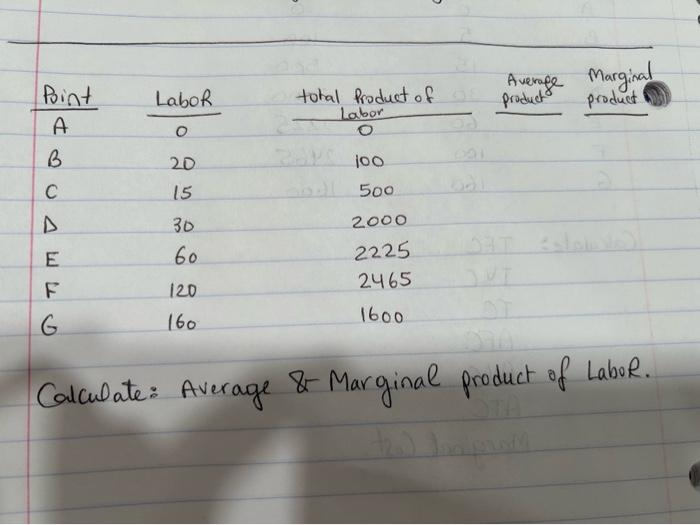 Point Labor total Product of Labor Average product Marginal product
A 0 0
B 20 100
C 15 500
D 30 2000
E 60 2225
F 120 2465
G 160 1600
Calculate: Average & Marginal product of Labor.